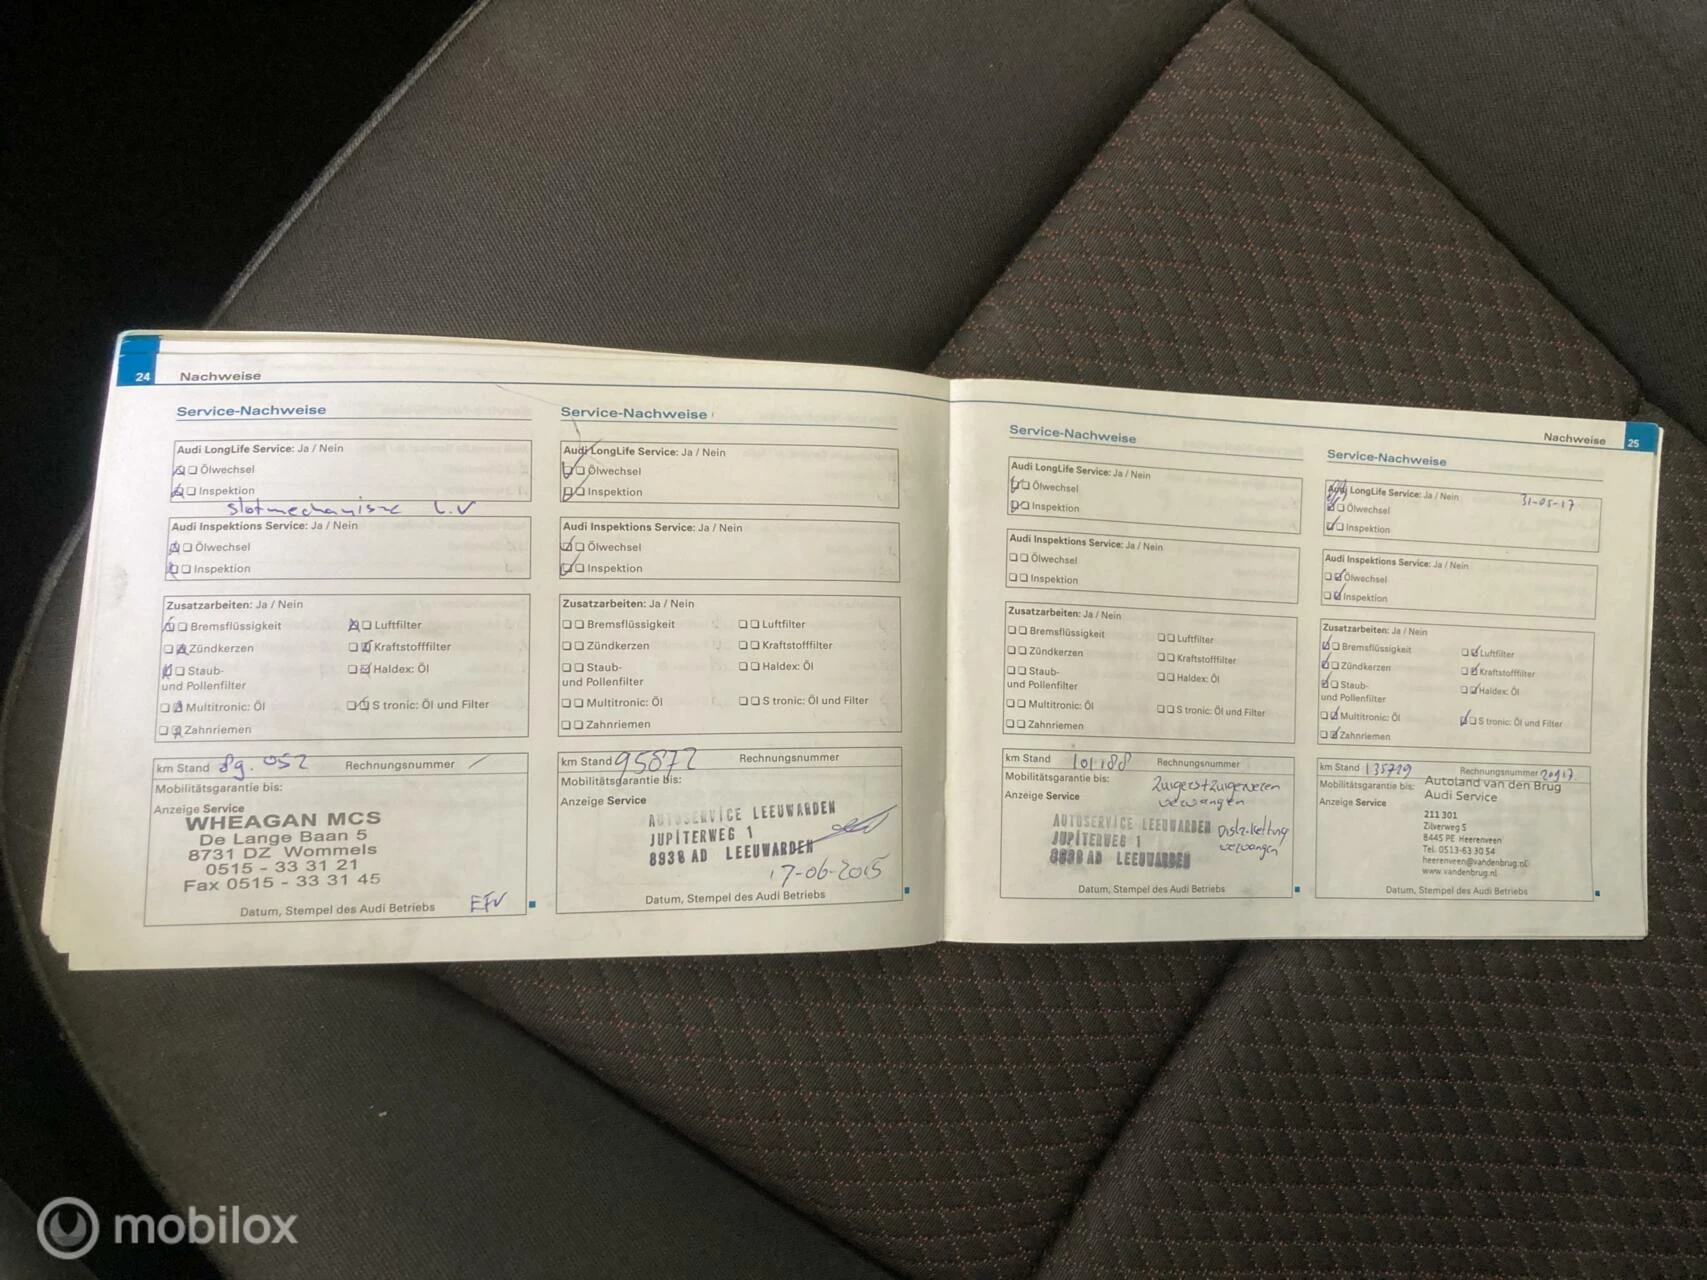 24 Nachweise
Service-Nachweise
Audi LongLife Service: Ja / Nein
Ölwechsel
Inspektion
slotmechanisme L.V
Audi Inspektions Service: Ja / Nein
Ölwechsel
Inspektion
Zusatzarbeiten: Ja / Nein
Bremsflüssigkeit Luftfilter
Zündkerzen Kraftstofffilter
Staub- Haldex: Öl
und Pollenfilter
Multitronic: Öl S tronic: Öl und Filter
Zahnriemen
km Stand 89.052 Rechnungsnummer
Mobilitätsgarantie bis:
Anzeige Service
WHEAGAN MCS
De Lange Baan 5
8731 DZ Wommels
0515 - 33 31 21
Fax 0515 - 33 31 45
Datum, Stempel des Audi Betriebs
Service-Nachweise
Audi LongLife Service: Ja / Nein
Ölwechsel
Inspektion
Audi Inspektions Service: Ja / Nein
Ölwechsel
Inspektion
Zusatzarbeiten: Ja / Nein
Bremsflüssigkeit Luftfilter
Zündkerzen Kraftstofffilter
Staub- Haldex: Öl
und Pollenfilter
Multitronic: Öl S tronic: Öl und Filter
Zahnriemen
km Stand 95872 Rechnungsnummer
Mobilitätsgarantie bis:
Anzeige Service
AUTOSERVICE LEEUWARDEN
JUPITERWEG 1
8938 AD LEEUWARDEN
17-06-2015
Datum, Stempel des Audi Betriebs
Service-Nachweise
Audi LongLife Service: Ja / Nein
Ölwechsel
Inspektion
Audi Inspektions Service: Ja / Nein
Ölwechsel
Inspektion
Zusatzarbeiten: Ja / Nein
Bremsflüssigkeit Luftfilter
Zündkerzen Kraftstofffilter
Staub- Haldex: Öl
und Pollenfilter
Multitronic: Öl S tronic: Öl und Filter
Zahnriemen
km Stand 101188 Rechnungsnummer
Mobilitätsgarantie bis:
Anzeige Service
AUTOSERVICE LEEUWARDEN
JUPITERWEG 1
8938 AD LEEUWARDEN
Datum, Stempel des Audi Betriebs
Nachweise 25
Service-Nachweise
Audi LongLife Service: Ja / Nein 31-05-17
Ölwechsel
Inspektion
Audi Inspektions Service: Ja / Nein
Ölwechsel
Inspektion
Zusatzarbeiten: Ja / Nein
Bremsflüssigkeit Luftfilter
Zündkerzen Kraftstofffilter
Staub- Haldex: Öl
und Pollenfilter
Multitronic: Öl S tronic: Öl und Filter
Zahnriemen
km Stand 135729 Rechnungsnummer
Mobilitätsgarantie bis:
Anzeige Service
Autoland van den Brug
Audi Service
211 301
Zilverweg 5
8445 PE Heerenveen
Tel. 0513-63 30 54
heerenveen@vandenbrug.nl
www.vandenbrug.nl
Datum, Stempel des Audi Betriebs
mobilox